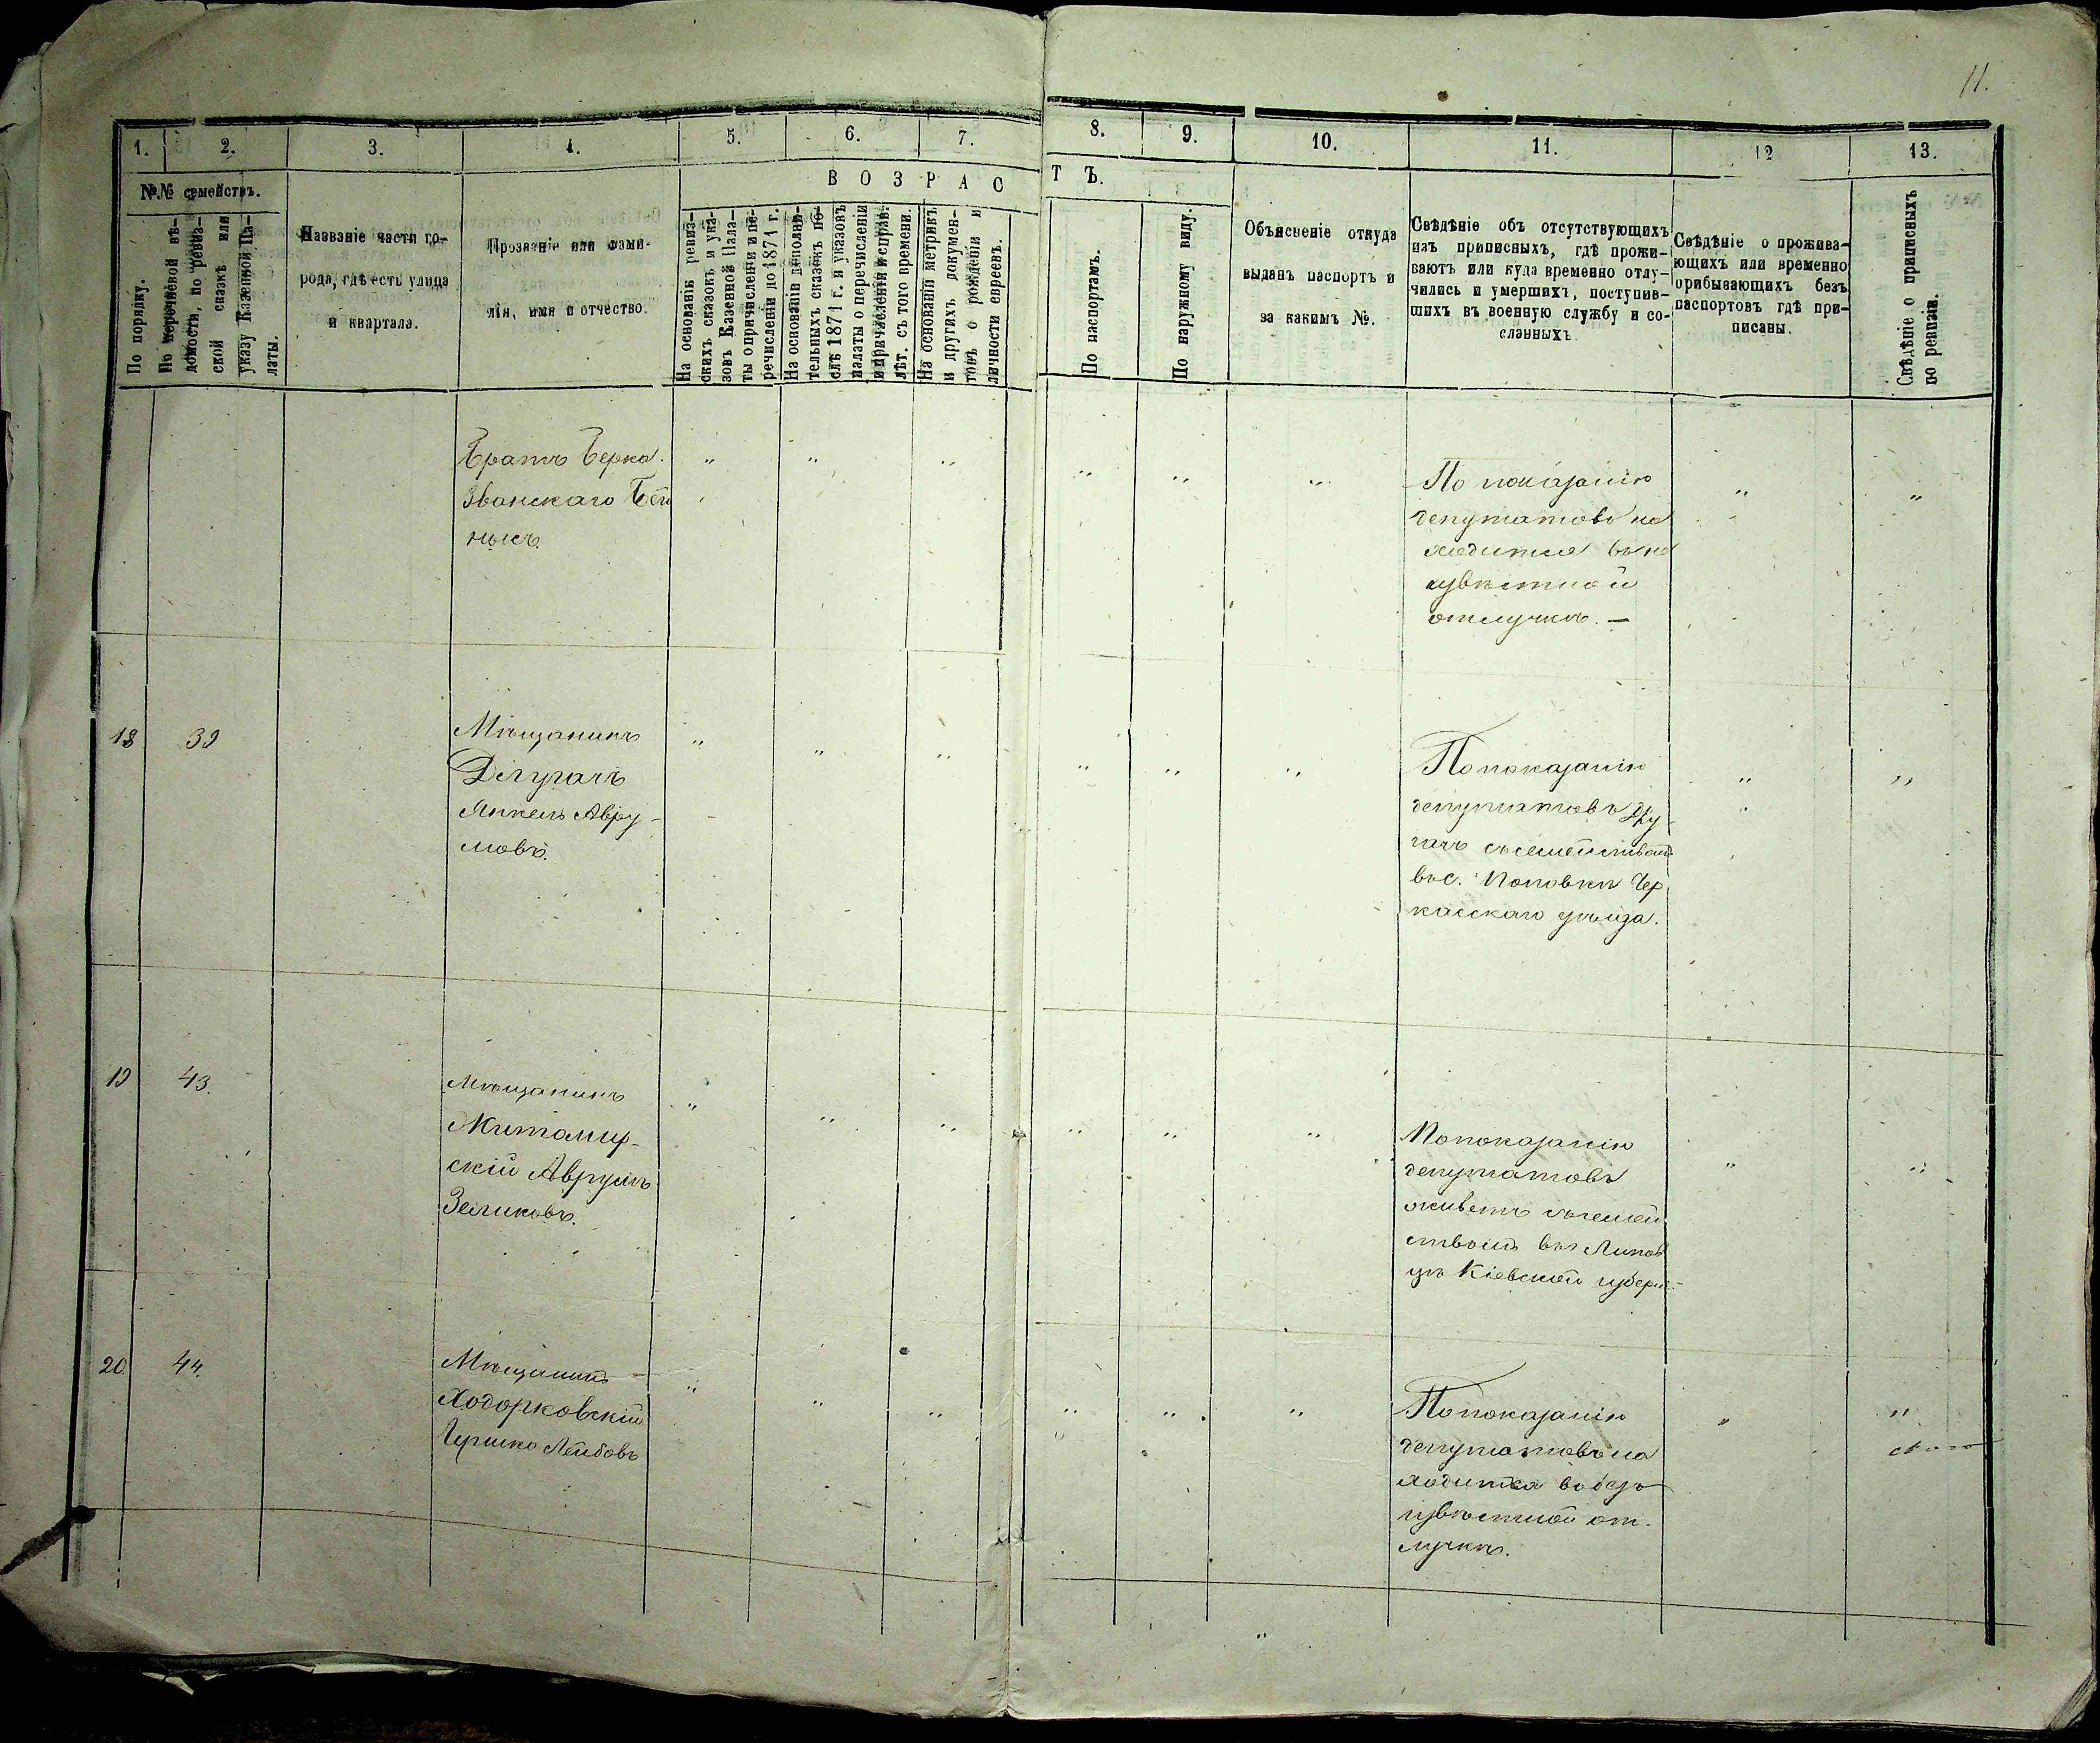 11.
1.
2.
3.
4.
5.
6.
7.
8.
9.
10.
11.
12
13.
№№ семействъ.
ВОЗРАСТЪ.
По порядку.
По перечневой вѣ-
домости, по ревиз-
ской сказкѣ или
указу Казенной Па-
латы.
Названіе части го-
рода, гдѣ есть улица
и квартала.
Прозваніе или фами-
лія, имя и отчество.
На основаніи ревиз-
скихъ сказокъ и ука-
зовъ Казенной Пала-
ты о причисленіи и пе-
речисленіи до 1871 г.
На основаніи дополни-
тельныхъ сказокъ по-
слѣ 1871 г. и указовъ
палаты о перечисленіи
и причисленіи и справ.
лѣт. съ того времени.
На основаніи метрикъ
и другихъ докумен-
товъ о рожденіи и
личности евреевъ.
По паспортамъ.
По наружному виду.
Объясненіе откуда
выданъ паспортъ и
за какимъ №.
Свѣдѣніе объ отсутствующихъ
изъ приписныхъ, гдѣ прожи-
ваютъ или куда временно отлу-
чились и умершихъ, поступив-
шихъ въ военную службу и со-
сланныхъ
Свѣдѣніе о прожива-
ющихъ или временно
прибывающихъ безъ
паспортовъ гдѣ при-
писаны.
Свѣдѣніе о приписныхъ
по ревизіи.
Братъ Берка
Званскаго
По показанію
депутатовъ на
ходится въ не
извѣстной
отлучкѣ. —
18 39
Мѣщанинъ
Янкель Авру-
мовъ.
По показанію
депутатовъ
съ семействомъ
въ с. Поповкѣ Чер
касскаго уѣзда.
19 43.
Мѣщанинъ
Житомир-
скій Аврумъ
Зеликовъ.
По показанію
депутатовъ
живетъ съ семей
ствомъ въ Липов
цѣ Кіевской губерні
20. 44.
Мѣщанинъ
Ходорковскій
Гершко Лейбовъ
По показанію
депутатовъ на
ходится въ безъ
извѣстной от-
лучкѣ.